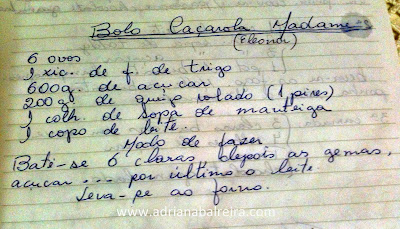 Bolo Caçarola Madame
(Eleonor)
6 ovos
1 xic. de f. de trigo
600g. de açucar
200g. de queijo ralado (1 pires)
1 colh. de sopa de manteiga
1 copo de leite.
Modo de fazer
Bate-se 6 claras depois as gemas,
açucar... por último o leite.
Leva-se ao forno.
www.adrianabaireira.com